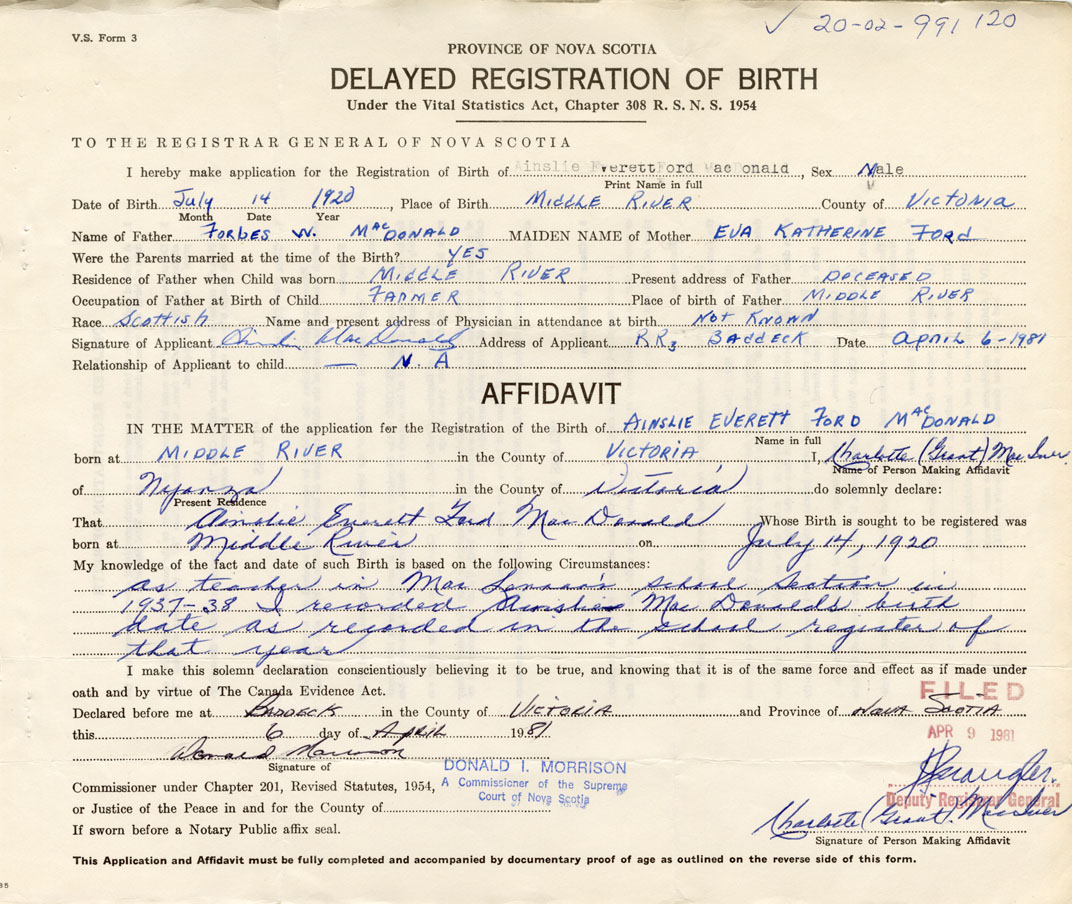 ✓ 20-02-991120
V.S. Form 3
PROVINCE OF NOVA SCOTIA
DELAYED REGISTRATION OF BIRTH
Under the Vital Statistics Act, Chapter 308 R. S. N. S. 1954
TO THE REGISTRAR GENERAL OF NOVA SCOTIA
I hereby make application for the Registration of Birth of Ainslie Everett Ford Mac onald, Sex Male
Print Name in full
Date of Birth July 14 1920, Place of Birth MIDDLE RIVER County of VICTORIA
Month Date Year
Name of Father FORBES W. MacDONALD MAIDEN NAME of Mother EVA KATHERINE FORD
Were the Parents married at the time of the Birth? YES
Residence of Father when Child was born MIDDLE RIVER Present address of Father DECEASED
Occupation of Father at Birth of Child FARMER Place of birth of Father MIDDLE RIVER
Race Scottish Name and present address of Physician in attendance at birth NOT KNOWN
Signature of Applicant MacDonald Address of Applicant RR3 BADDECK Date April 6-1981
Relationship of Applicant to child — N.A
AFFIDAVIT
IN THE MATTER of the application for the Registration of the Birth of AINSLIE EVERETT FORD MacDONALD
Name in full
born at MIDDLE RIVER in the County of VICTORIA I, Charlotte (Grant) MacIver
Name of Person Making Affidavit
of Nyanza in the County of Victoria do solemnly declare:
Present Residence
That Ainslie Everett Ford MacDonald Whose Birth is sought to be registered was
born at Middle River on July 14, 1920
My knowledge of the fact and date of such Birth is based on the following Circumstances:
as teacher in MacLennan's school section in
1937-38 I recorded Ainslie MacDonald's birth
date as recorded in the school register of
that year
I make this solemn declaration conscientiously believing it to be true, and knowing that it is of the same force and effect as if made under
oath and by virtue of The Canada Evidence Act.
FILED
Declared before me at BADDECK in the County of VICTORIA and Province of NOVA SCOTIA
this 6 day of April 1981
APR 9 1981
Donald Morrison
Signature of
DONALD I. MORRISON
A Commissioner of the Supreme
Court of Nova Scotia
Commissioner under Chapter 201, Revised Statutes, 1954,
or Justice of the Peace in and for the County of
Deputy Registrar General
Charlotte (Grant) MacIver
If sworn before a Notary Public affix seal.
Signature of Person Making Affidavit
This Application and Affidavit must be fully completed and accompanied by documentary proof of age as outlined on the reverse side of this form.
85